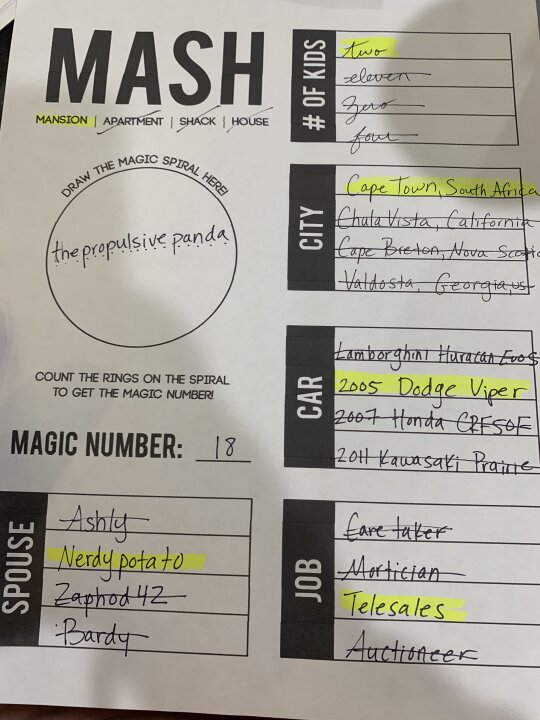 MASH
MANSION | APARTMENT | SHACK | HOUSE
DRAW THE MAGIC SPIRAL HERE!
the propulsive panda
COUNT THE RINGS ON THE SPIRAL
TO GET THE MAGIC NUMBER!
MAGIC NUMBER: 18
# OF KIDS
two
eleven
zero
four
CITY
Cape Town, South Africa
Chula Vista, California
Cape Breton, Nova Scotia
Valdosta, Georgia, US
CAR
Lamborghini Huracan Evos
2005 Dodge Viper
2007 Honda CRF50F
2011 Kawasaki Prairie
SPOUSE
Ashly
Nerdypotato
Zaphod42
Bardy
JOB
Care taker
Mortician
Telesales
Auctioneer